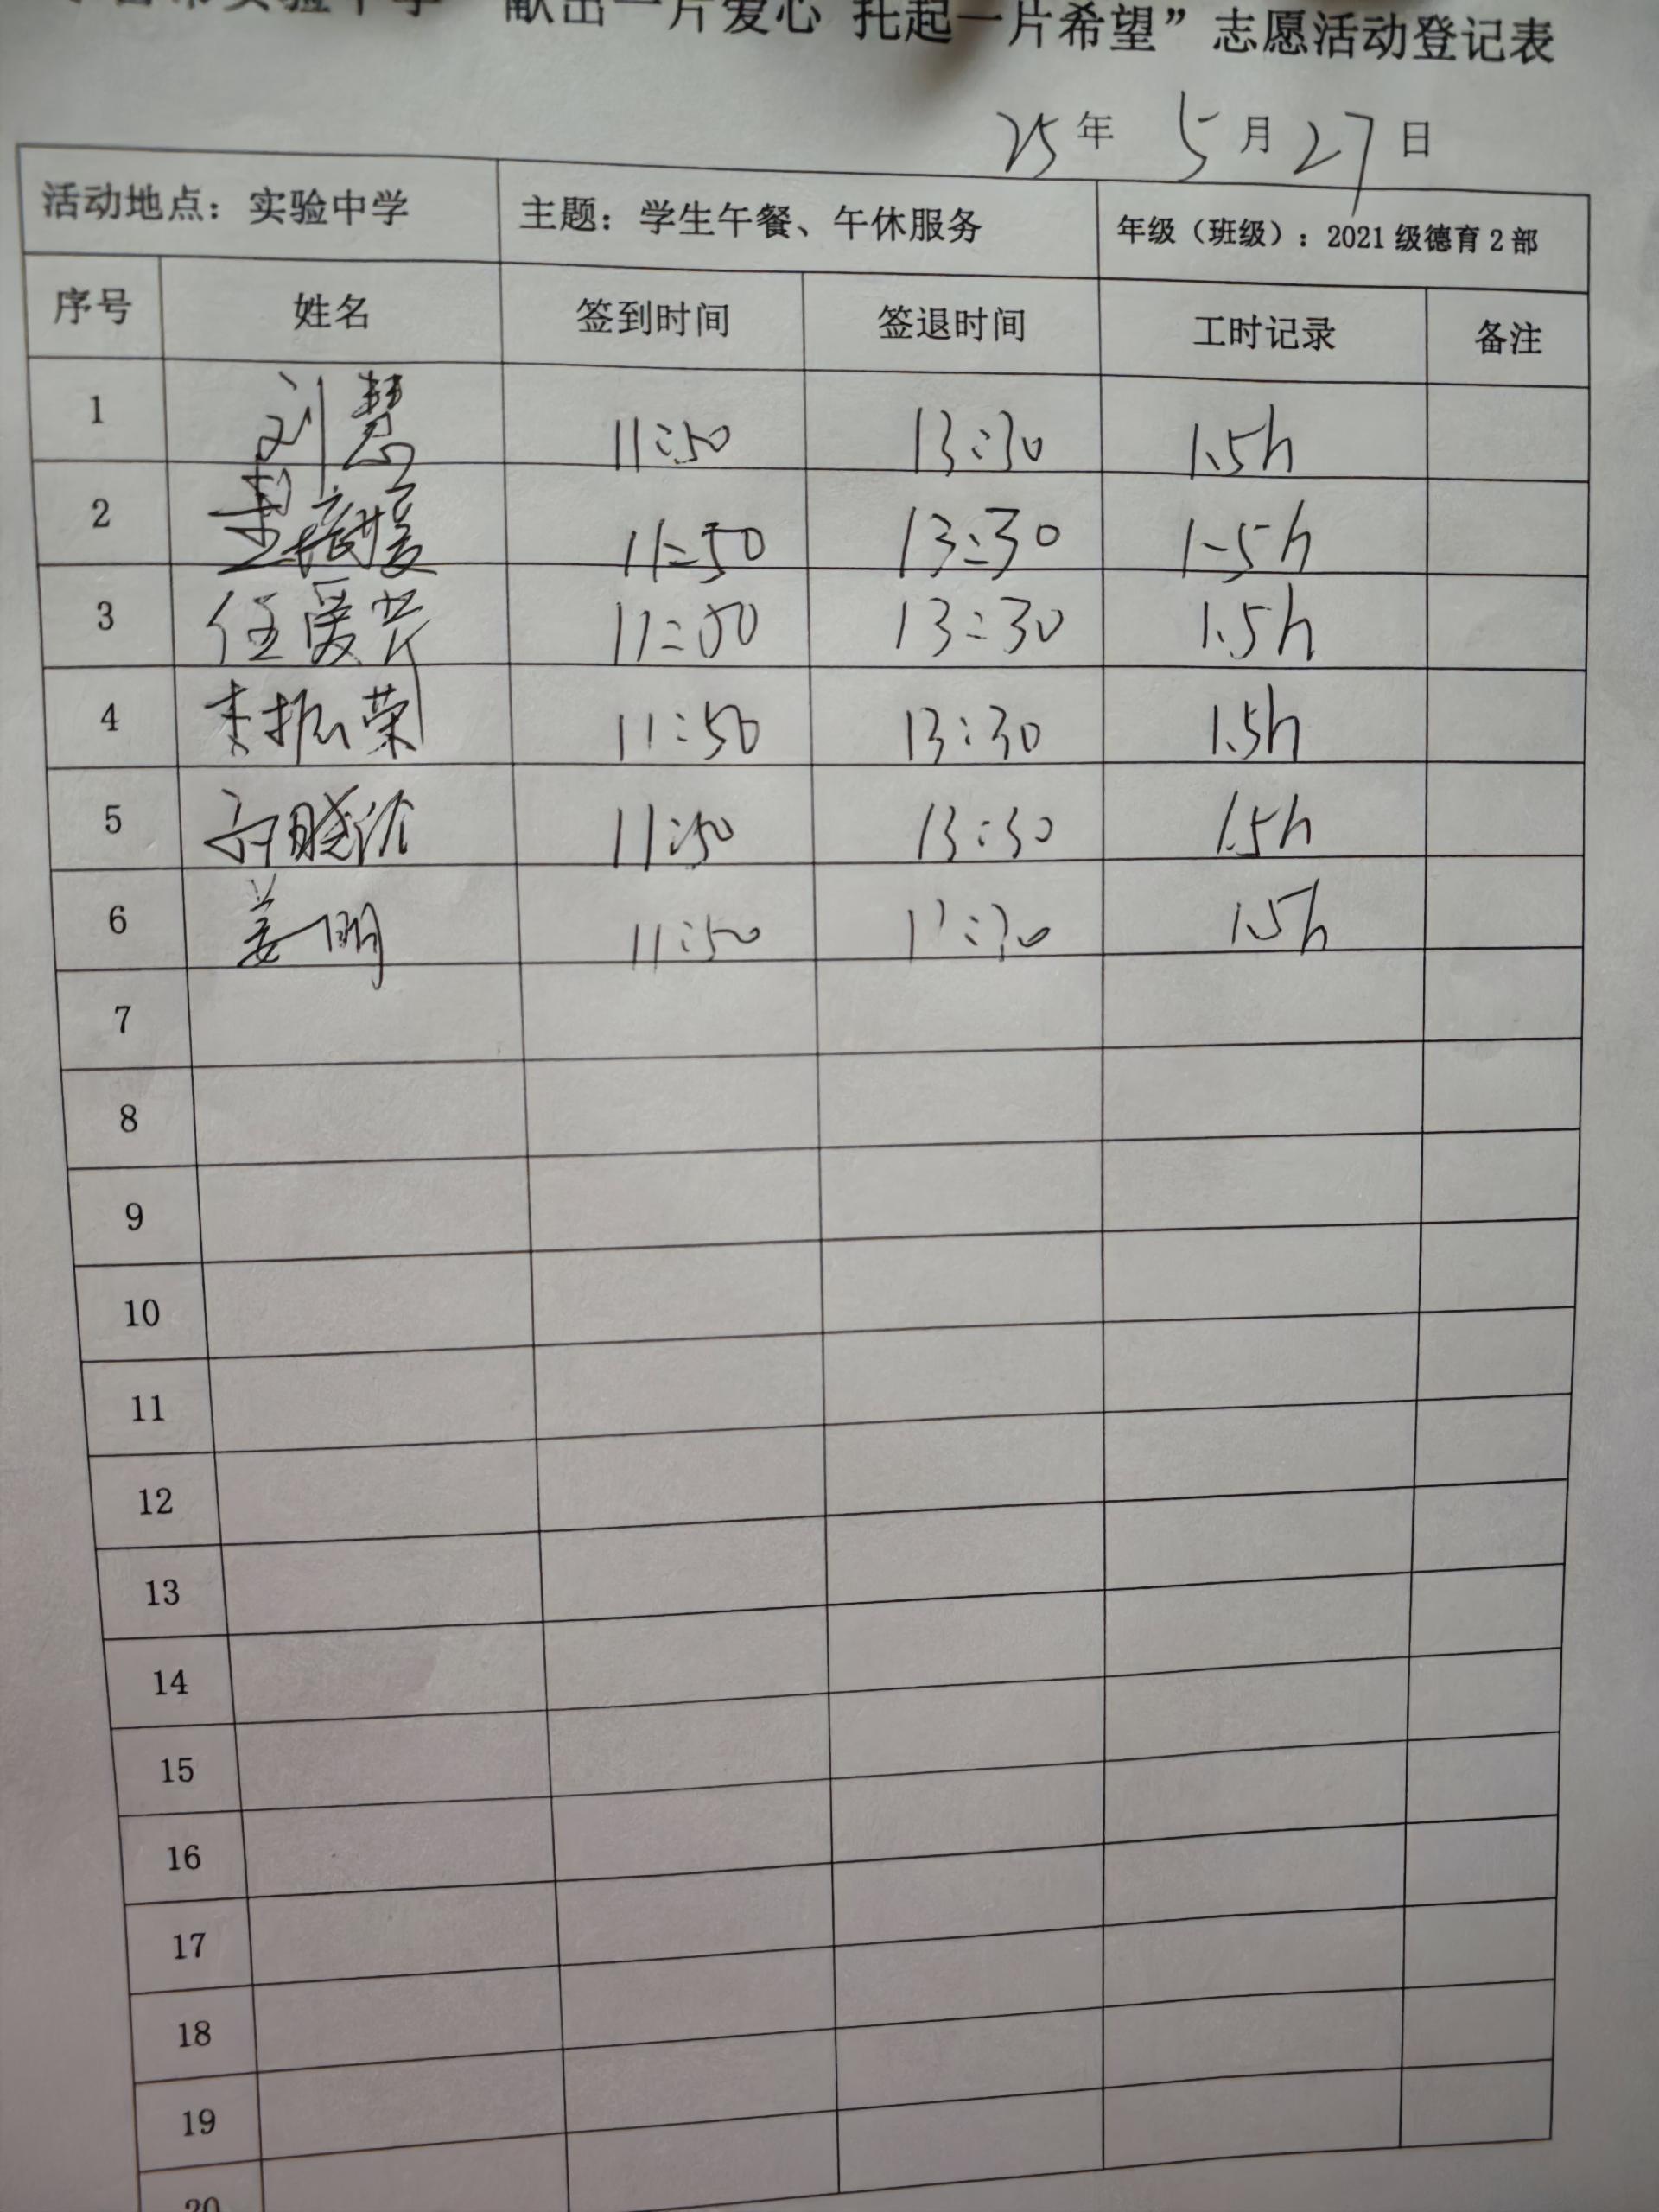 实验中学 献出一片爱心 托起一片希望”志愿活动登记表
25年 5月27日
活动地点：实验中学 主题：学生午餐、午休服务 年级（班级）：2021级德育2部
序号 姓名 签到时间 签退时间 工时记录 备注
1 刘慧 11:50 13:30 1.5h
2 11:50 13:30 1.5h
3 任爱芹 11:50 13:30 1.5h
4 李振荣 11:50 13:30 1.5h
5 11:50 13:30 1.5h
6 姜明 11:50 13:30 1.5h
7
8
9
10
11
12
13
14
15
16
17
18
19
20